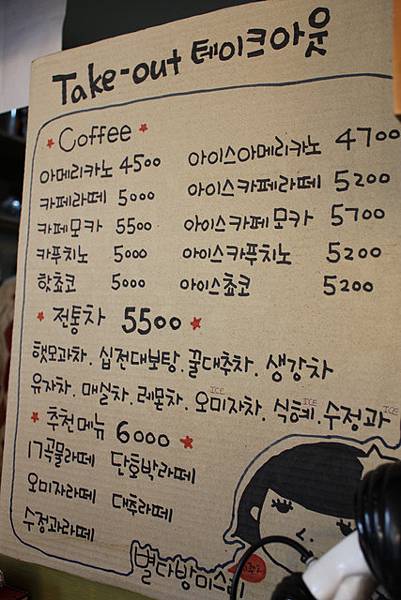 Take-out 테이크아웃
Coffee
아메리카노 4500 아이스아메리카노 4700
카페라떼 5000 아이스카페라떼 5200
카페모카 5500 아이스카페모카 5700
카푸치노 5000 아이스카푸치노 5200
핫쵸코 5000 아이스쵸코 5200
전통차 5500
햇모과차. 십전대보탕. 꿀대추차. 생강차
ICE ICE ICE
유자차. 매실차. 레몬차. 오미자차. 식혜. 수정과
추천메뉴 6000
17곡물라떼 단호박라떼
오미자라떼 대추라떼
수정과라떼
별다방미스